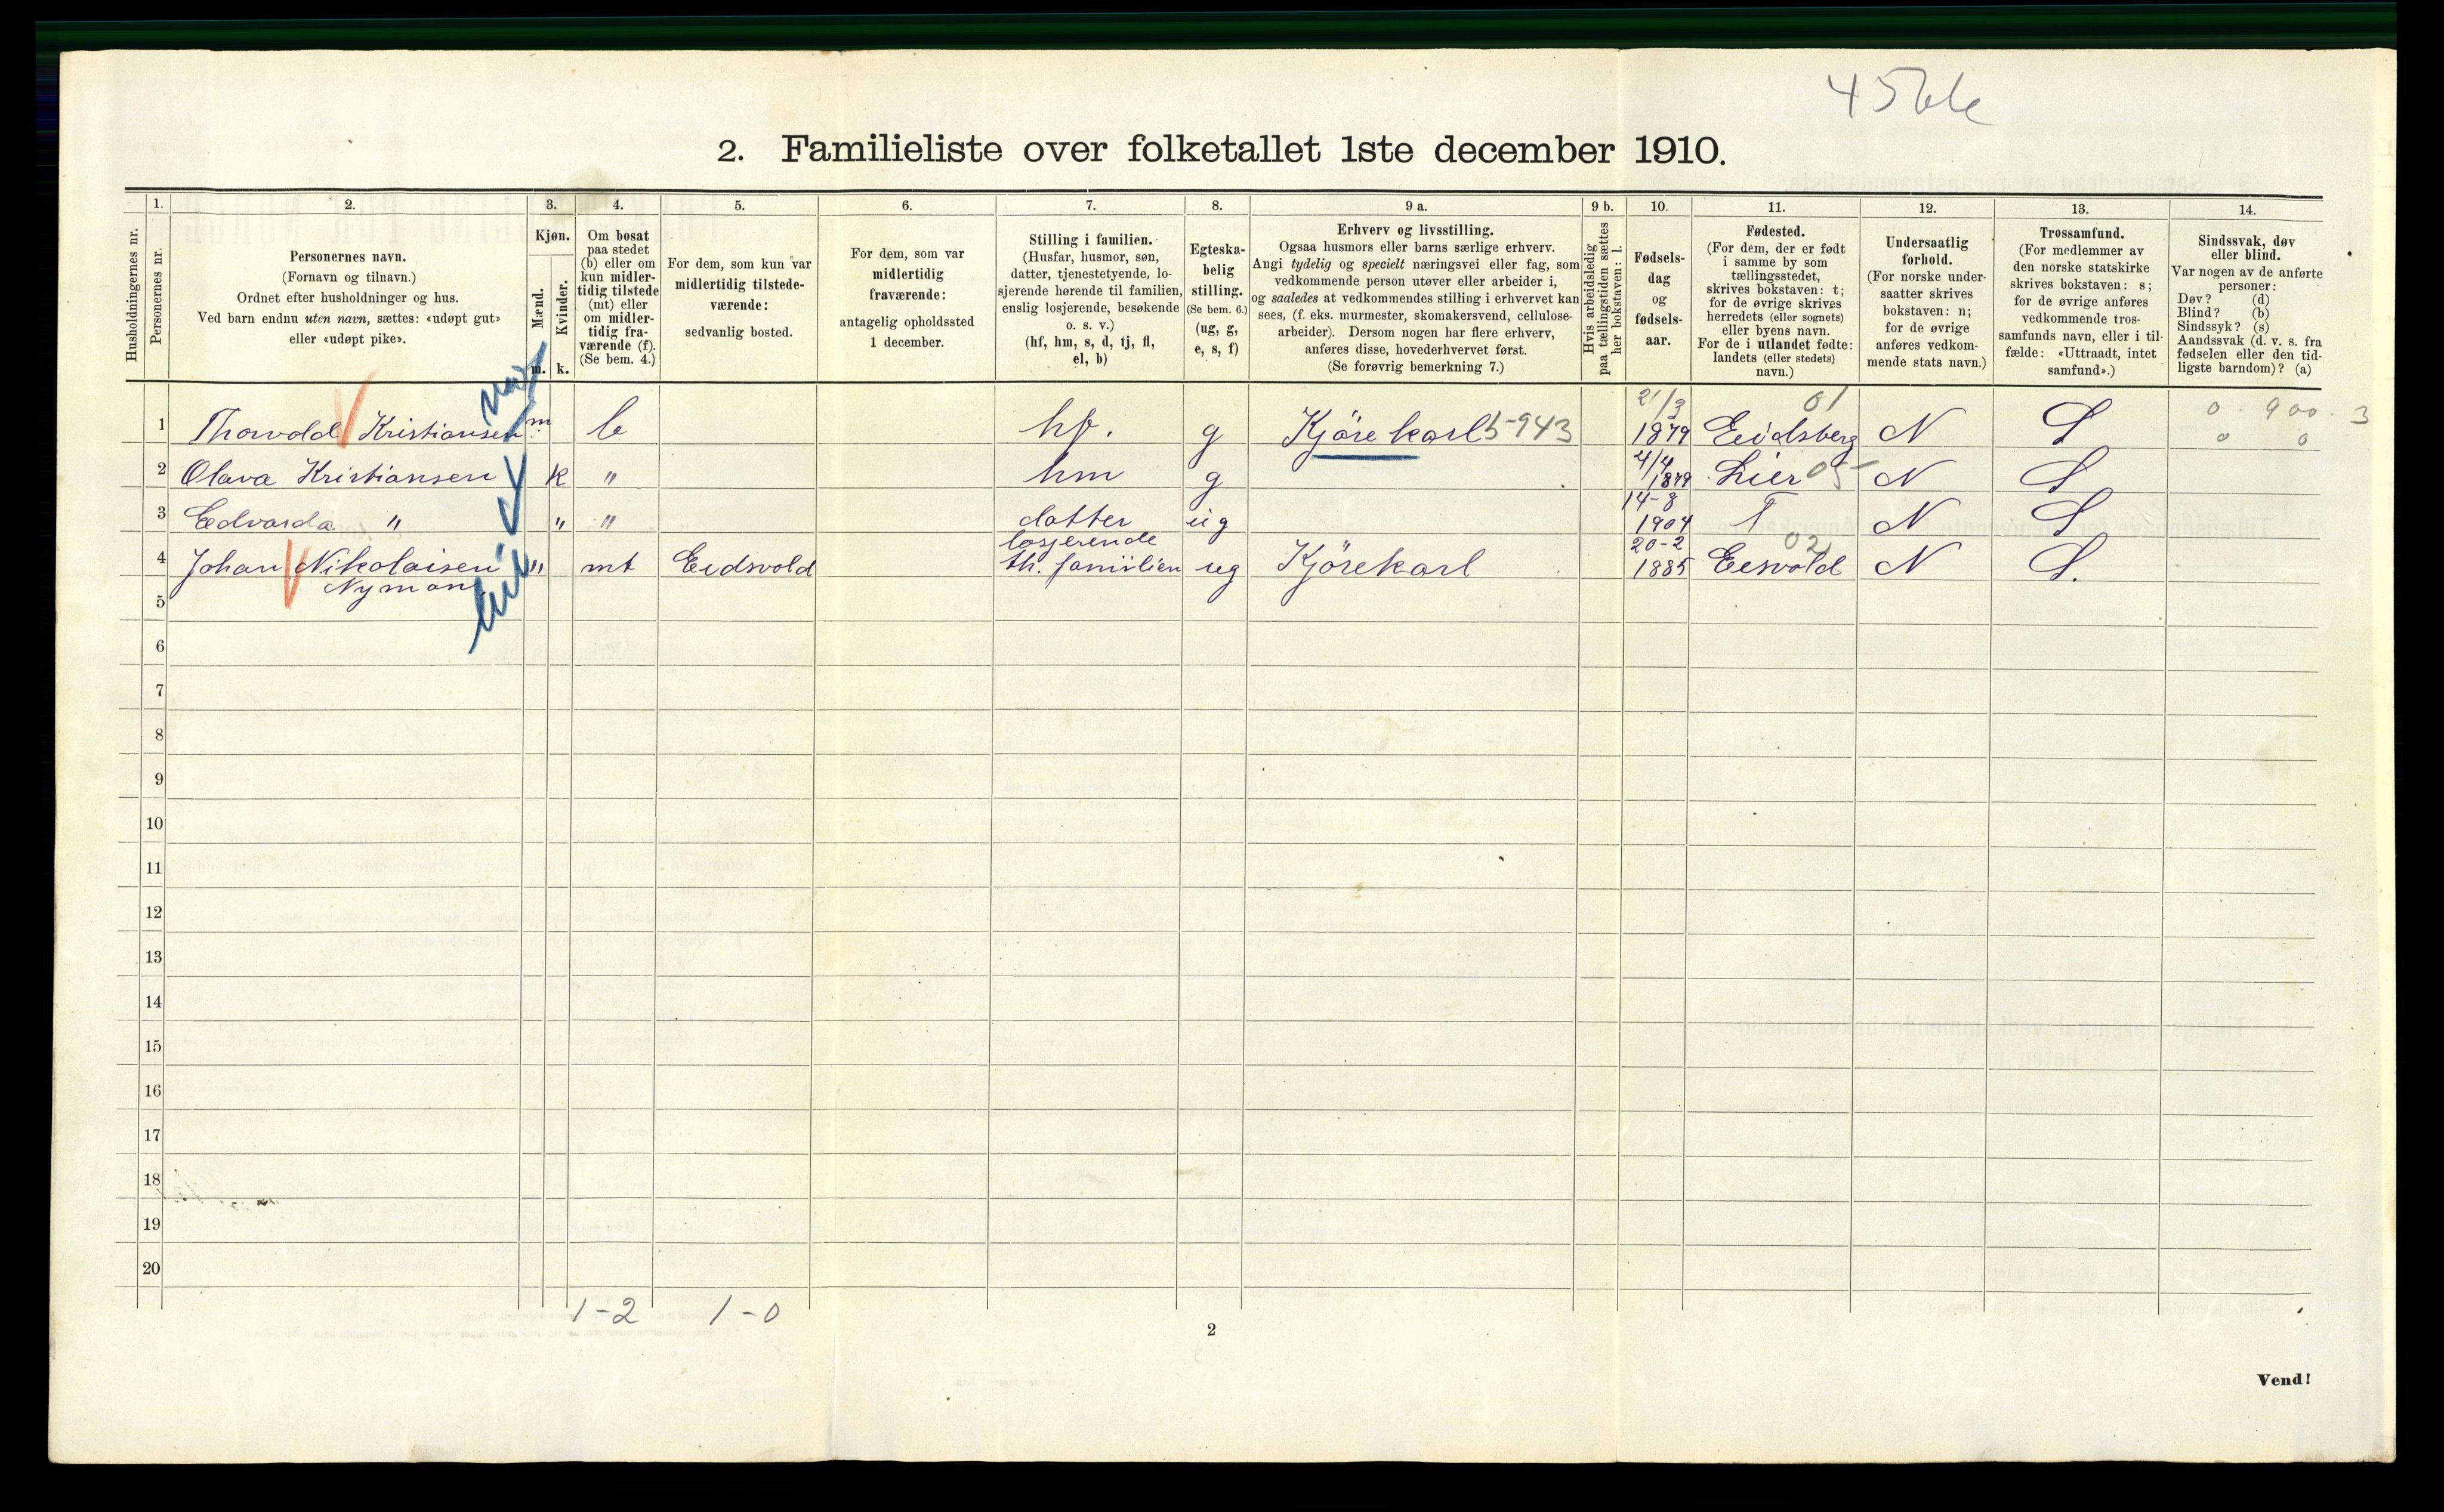 2. Familieliste over folketallet 1ste december 1910.
Husholdningernes nr.
1.
Personernes nr.
2.
Personernes navn.
(Fornavn og tilnavn.)
Ordnet efter husholdninger og hus.
Ved barn endnu uten navn, sættes: «udøpt gut»
eller «udøpt pike».
3.
Kjøn.
Mænd.
Kvinder.
m.
k.
4.
Om bosat
paa stedet
(b) eller om
kun midler-
tidig tilstede
(mt) eller
om midler-
tidig fra-
værende (f).
(Se bem. 4.)
5.
For dem, som kun var
midlertidig tilstede-
værende:
sedvanlig bosted.
6.
For dem, som var
midlertidig
fraværende:
antagelig opholdssted
1 december.
7.
Stilling i familien.
(Husfar, husmor, søn,
datter, tjenestetyende, lo-
sjerende hørende til familien,
enslig losjerende, besøkende
o. s. v.)
(hf, hm, s, d, tj, fl,
el, b)
8.
Egteska-
belig
stilling.
(Se bem. 6.)
(ug, g,
e, s, f)
9 a.
Erhverv og livsstilling.
Ogsaa husmors eller barns særlige erhverv.
Angi tydelig og specielt næringsvei eller fag, som
vedkommende person utøver eller arbeider i,
og saaledes at vedkommendes stilling i erhvervet kan
sees, (f. eks. murmester, skomakersvend, cellulose-
arbeider). Dersom nogen har flere erhverv,
anføres disse, hovederhvervet først.
(Se forøvrig bemerkning 7.)
9 b.
Hvis arbeidsledig
paa tællingstiden sættes
her bokstaven: l.
10.
Fødsels-
dag
og
fødsels-
aar.
11.
Fødested.
(For dem, der er født
i samme by som
tællingsstedet,
skrives bokstaven: t;
for de øvrige skrives
herredets (eller sognets)
eller byens navn.
For de i utlandet fødte:
landets (eller stedets)
navn.)
12.
Undersaatlig
forhold.
(For norske under-
saatter skrives
bokstaven: n;
for de øvrige
anføres vedkom-
mende stats navn.)
13.
Trossamfund.
(For medlemmer av
den norske statskirke
skrives bokstaven: s;
for de øvrige anføres
vedkommende tros-
samfunds navn, eller i til-
fælde: «Uttraadt, intet
samfund».)
14.
Sindssvak, døv
eller blind.
Var nogen av de anførte
personer:
Døv? (d)
Blind? (b)
Sindssyk? (s)
Aandssvak (d. v. s. fra
fødselen eller den tid-
ligste barndom)? (a)
1 Thorvald Kristiansen m b hf. g Kjörekarl 5-943 21/3 1879 Eidsberg 01 N S 0 900 3
0 0
2 Olava Kristiansen k " hm g 4/4 1879 Lier 05 N S
3 Edvarda " " " datter ug 14-8 1904 T N S
4 Johan Nikolaisen " mt Eidsvold losjerende th. familien ug Kjörekarl 20-2 1885 Eesvold 02 N S.
Nyman
5
6
7
8
9
10
11
12
13
14
15
16
17
18
19
20
1-2 1-0
2
Vend!